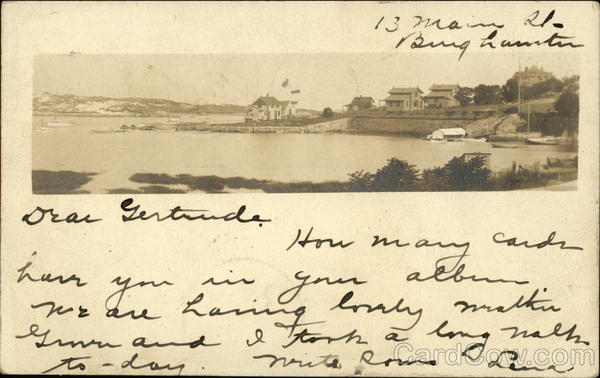 13 Main St
Binghamton
Dear Gertrude
How many cards
have you in your album
We are having lovely weather
and I took a long walk
to-day. Write soon
CardCow.com